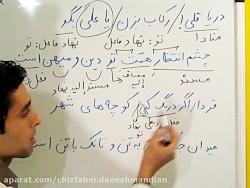 دریا قلی! / رکاب بزن / یا علی بگو
منادا تو: نهاد فاعل نهاد فاعل: تو
چشم انتظار همت تو دین و میهن است
مسند مضاف الیه نهاد فعل
فردا اگر درنگ کنی کوچه‌های شهر
نهاد
تو
میدان جنگ تن به تن و تانک با تن است
www.aparat.com/chizfahm.daneshmandian